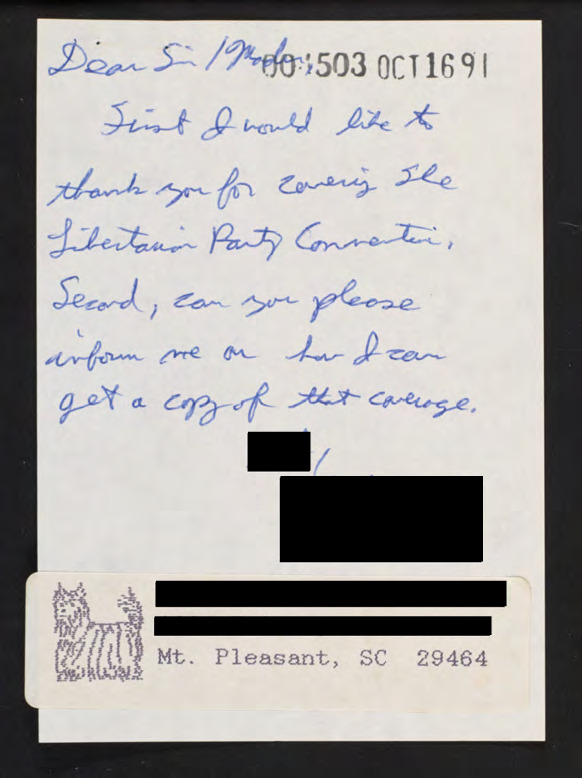 Dear Sir / Madam,
001503 OCT 16 91
First I would like to
thank you for covering the
Libertarian Party Convention.
Second, can you please
inform me on how I can
get a copy of that coverage.
Mt. Pleasant, SC 29464